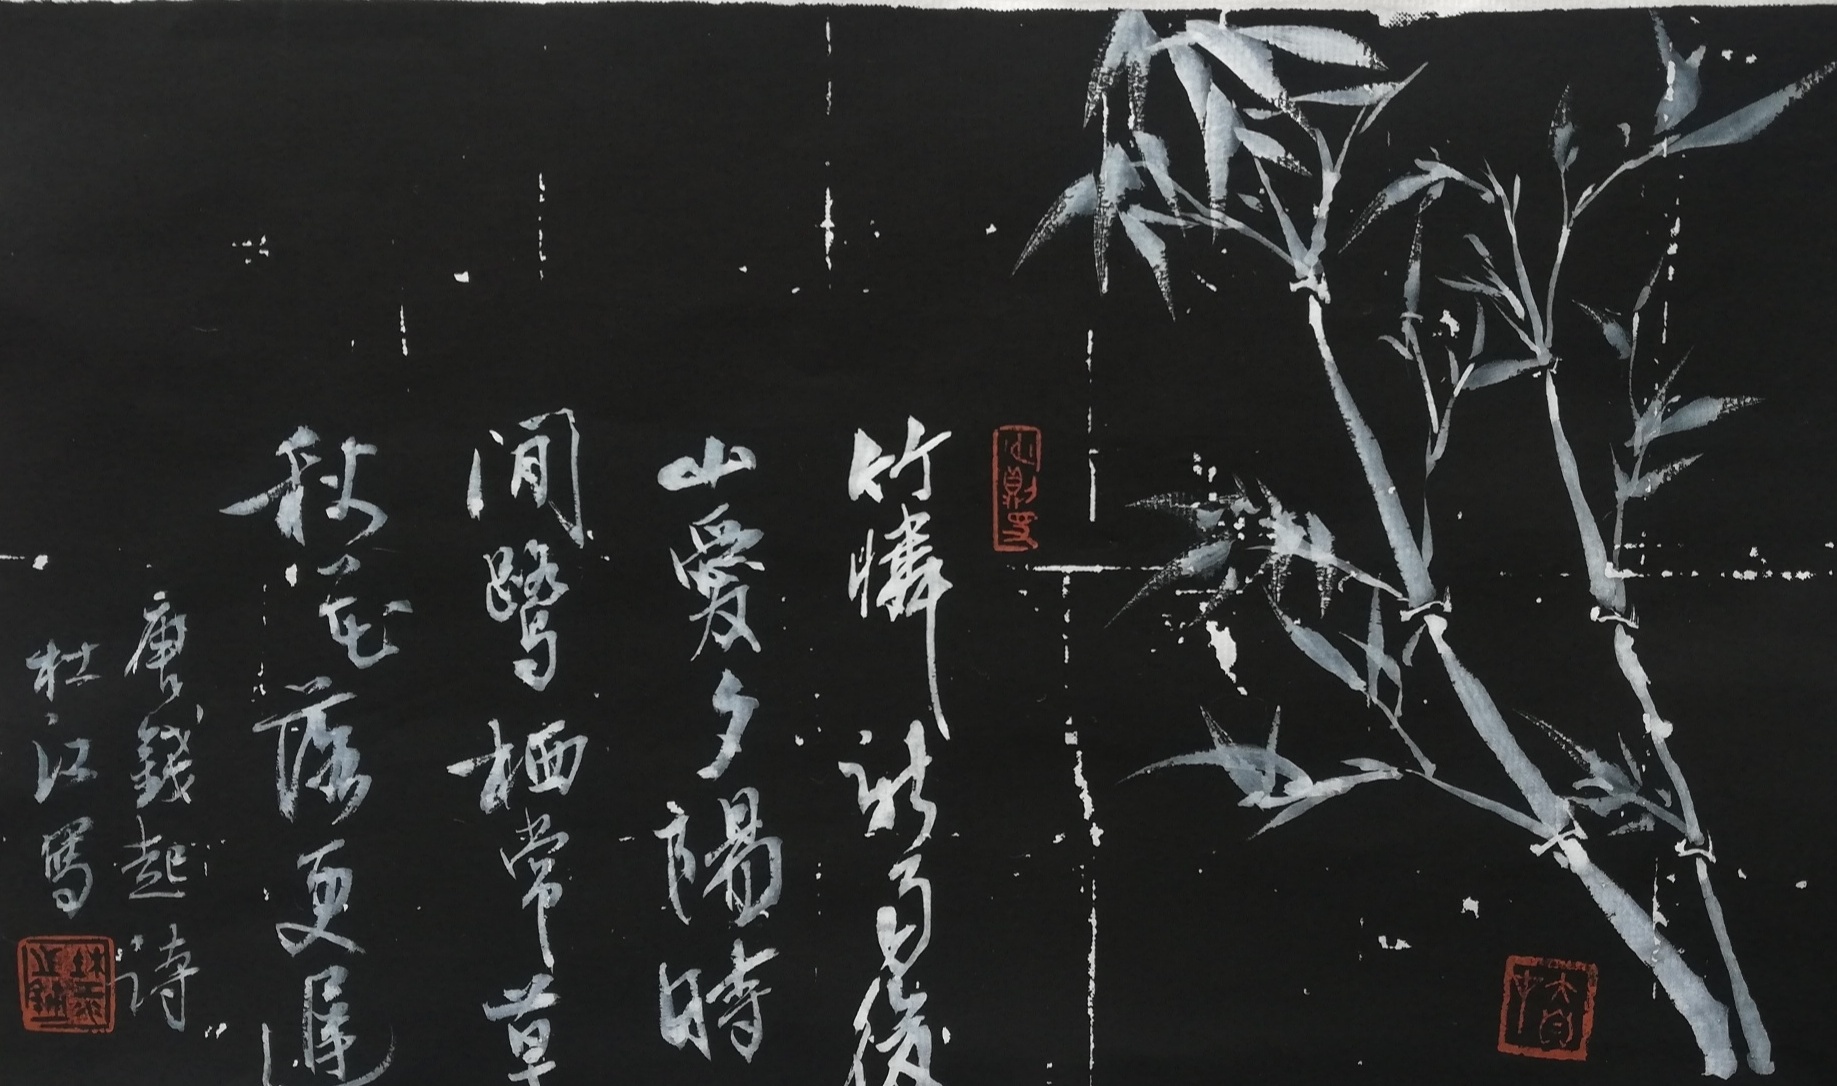 竹憐新雨後
山愛夕陽時
閒鷺栖常草
秋花落更遲
唐錢起詩
杜江寫